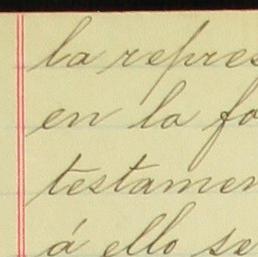 la repres
en la fo
testamen
á ello se